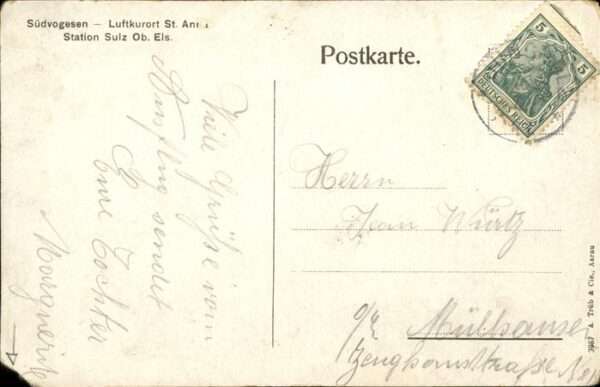 Südvogesen — Luftkurort St. Anna
Station Sulz Ob. Els.
Postkarte.
5
5
DEUTSCHES REICH
Viele Grüße vom
Ausflug sendet
Eure Tochter
Marguerite
Herrn
Jean Würtz
Mülhausen
Zeughausstraße
3957 A. Trüb & Cie., Aarau